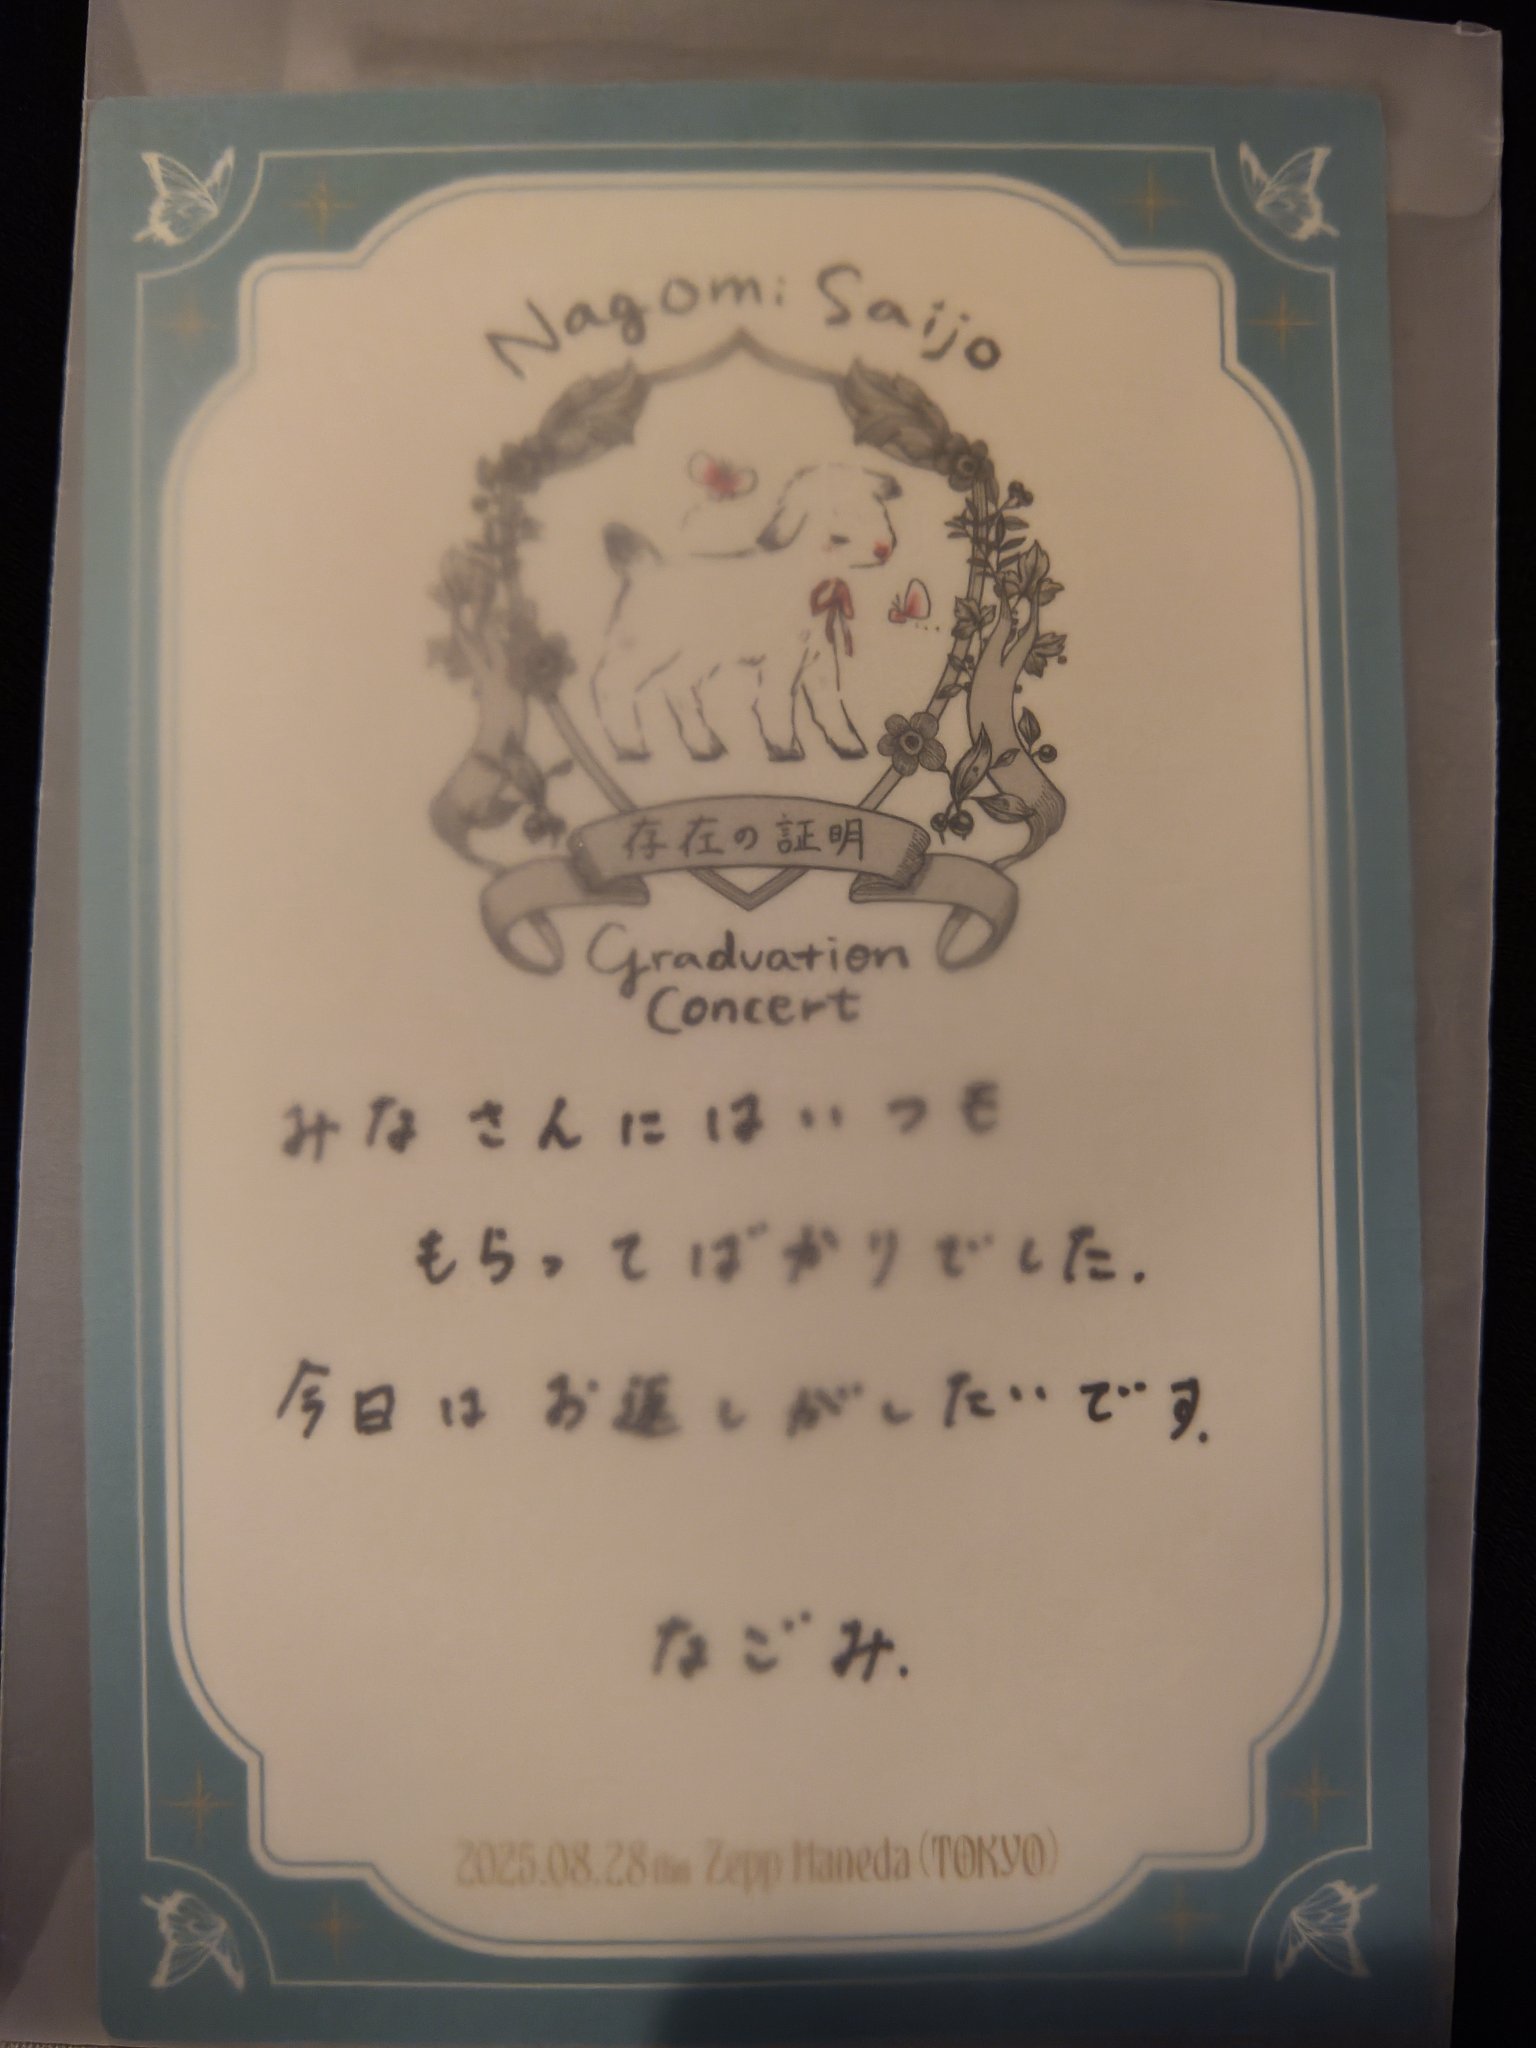 Nagomi Saijo
存在の証明
Graduation
Concert
みなさんにはいつも
もらってばかりでした.
今日はお返しがしたいです.
なごみ.
2025.08.28 Zepp Haneda (TOKYO)